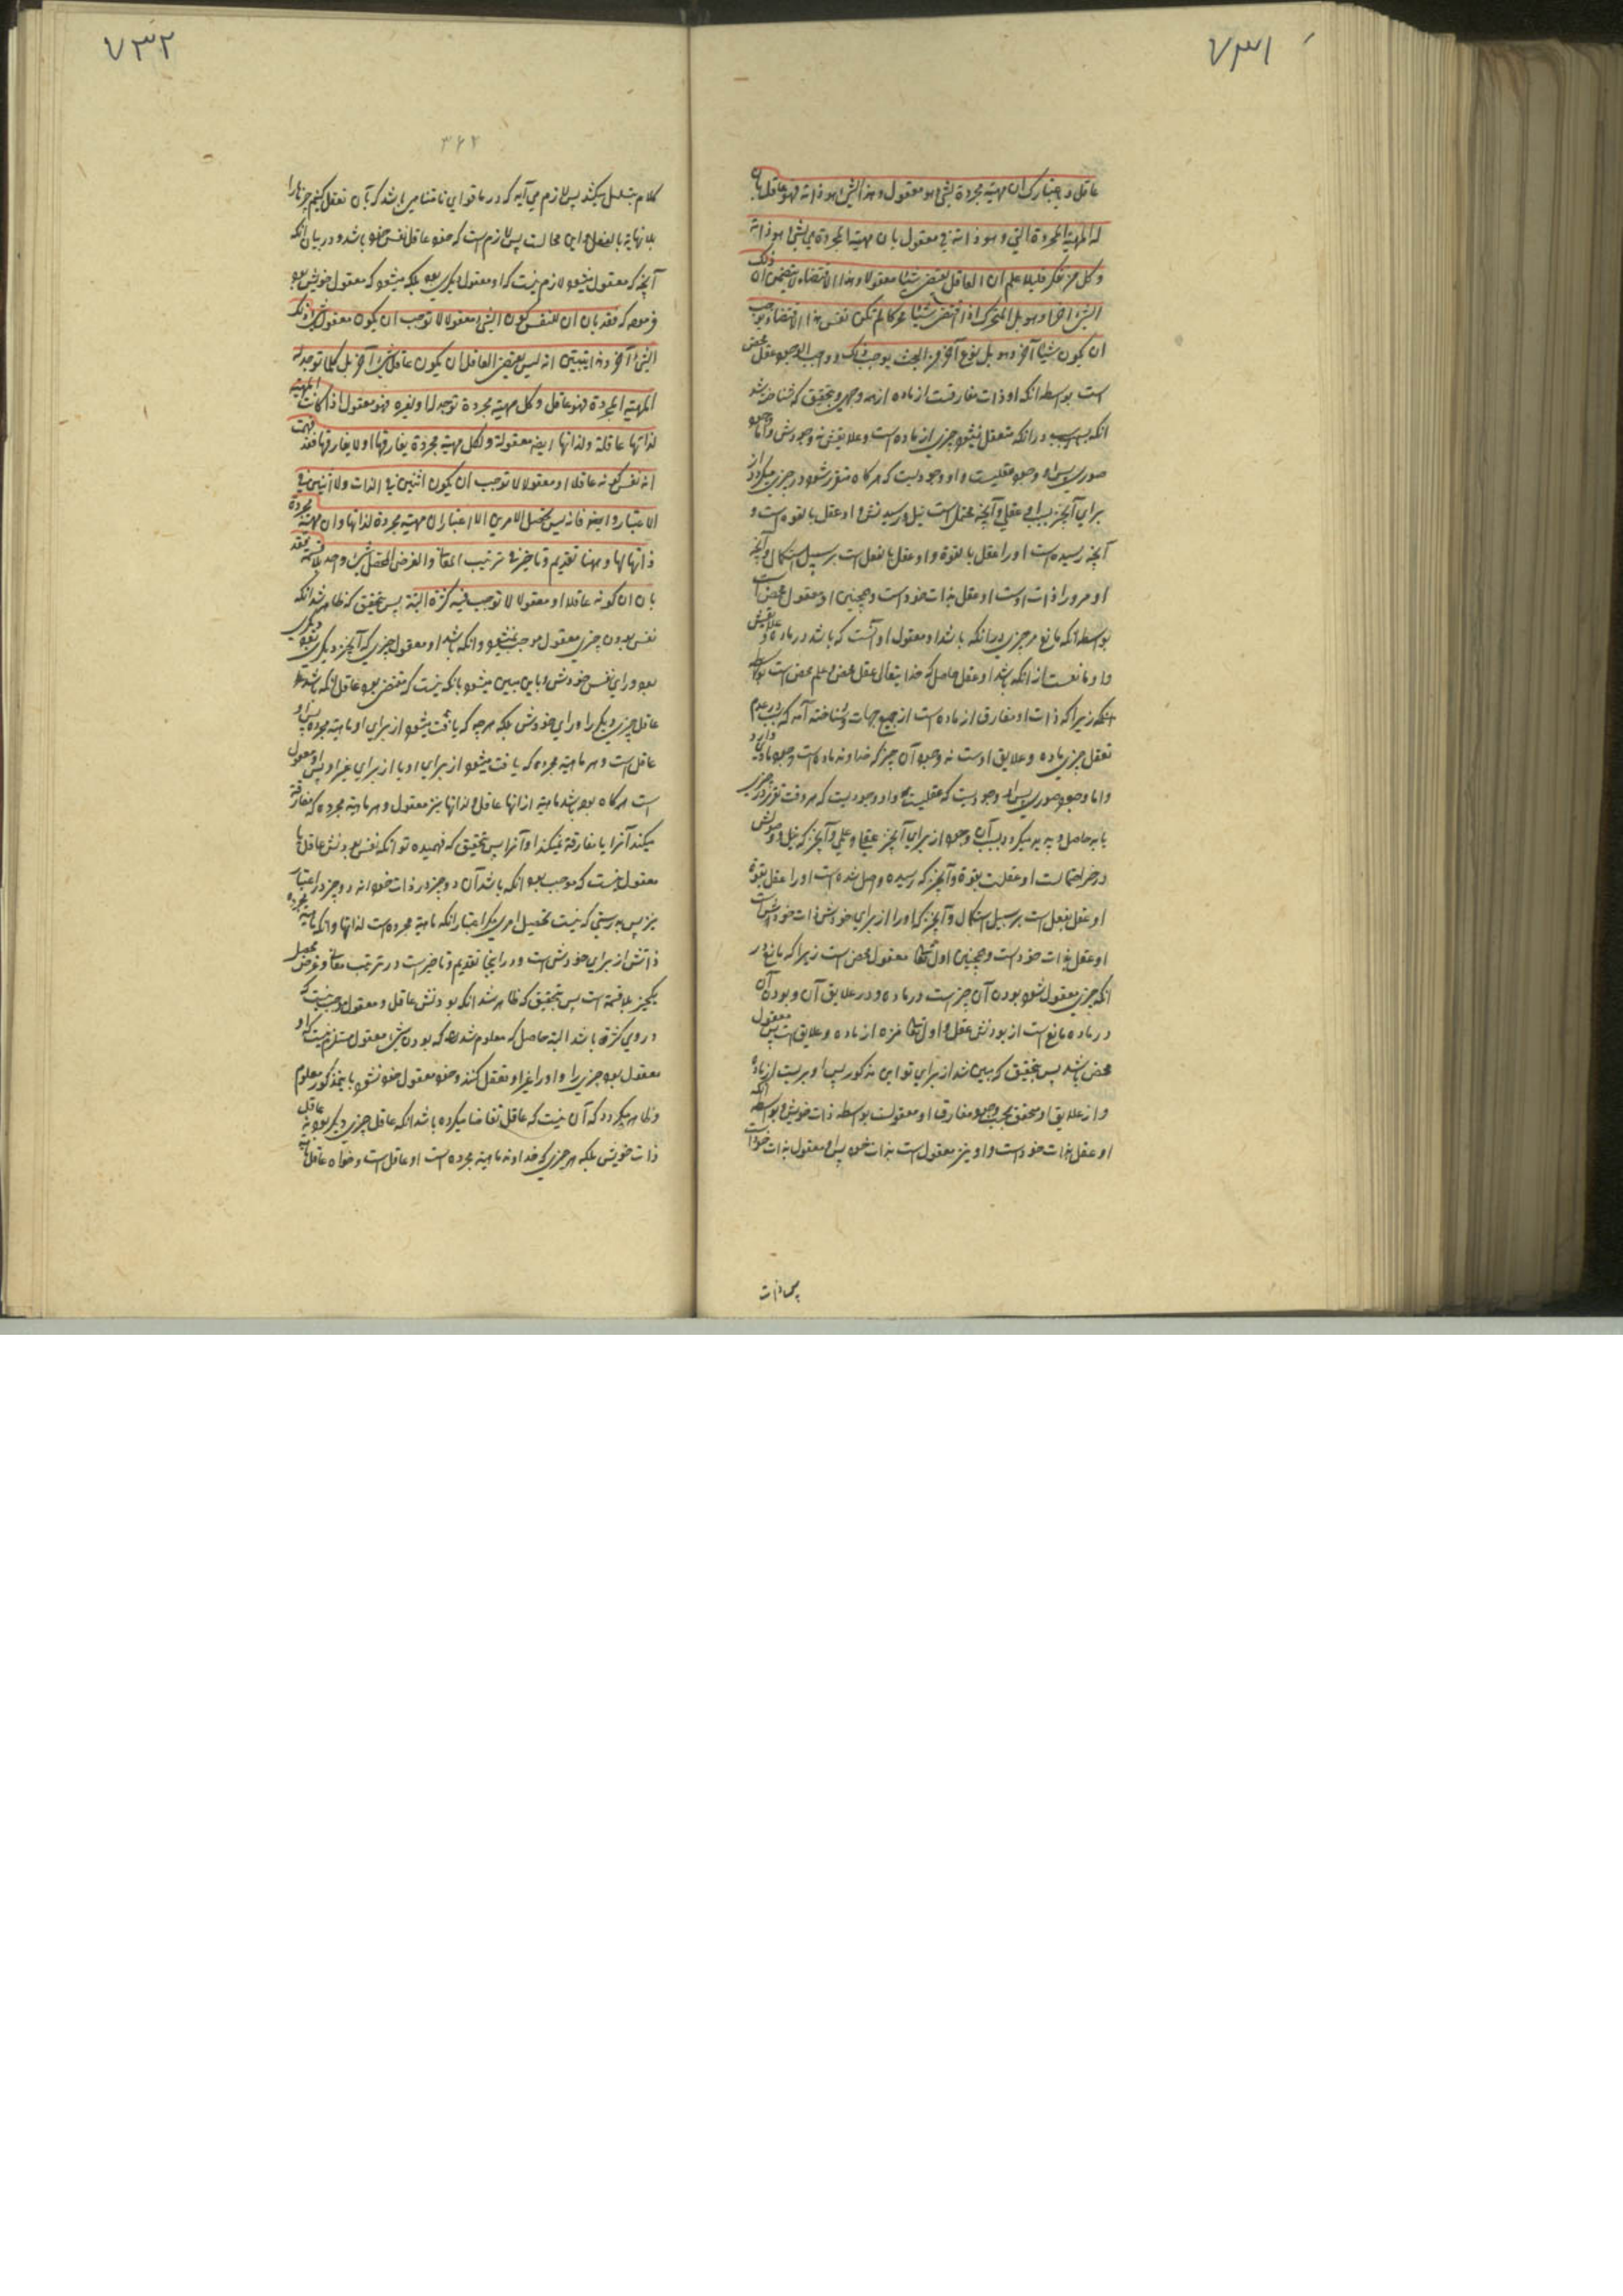 ۷۳۱
عاقل و باعتبارك ان مهية مجردة لشئ هو معقول وهذا الشئ هو ذاته فهو عاقل بان
له المهية المجردة التي وهو ذاته معقول بان مهية المجردة هي لشئ هو ذاته
وكل من تفكر قليلا علم ان العاقل يقتضي شيئا معقولا وهذا الاقتضاء لا يتضمن ان ذلك
الشئ آخر او هو بل المتحرك اذا اقتضى شيئا محركا لم يكن نفس هذا الاقتضاء يوجب
ان يكون شيئا آخر او هو بل نوع آخر من البحث يوجب ذلك و واجب الوجود عقل محض
است بواسطه انكه او ذات مفارقست از ماده از همه وجهى و بتحقيق كه شناخته شد
انكه سبب در انكه متعقل نميشود چيزى از ماده است و علايقش نه وجودش واما وجود
صورى پس او وجود عقليست و او وجوديست كه هر كاه متقرر شود در چيزى ميكردد از
براى آنچيز عقلى و آنچه محتمل است نيل و رسيدنش او عقل بالقوه است و
آنچه رسيده است او را عقل بالقوة و او عقل بالفعل است بر سبيل استكمال و آنچه
او مر او را ذات اوست او عقل بذات خود است و همچنين او معقول محض است
بواسطه انكه مانع مر چيزى در انكه باشد او معقول او آنست كه باشد در ماده و علايقش
و او مانعست از انكه باشد او عقل حاصل كه خدا يتعالى عقل محض و علم محض است بواسطه
انكه زيرا كه ذات او مفارق از ماده است از جميع جهات و شناخته آمد كه سبب در عدم
تعقل چيزى ماده و علايق اوست نه وجود آن چيز كه خداوند ماده است وجود مادى دارد
واما وجود صورى پس او وجوديست كه عقليست و او وجوديست كه هر وقت تقرر در چيزى
يابد حاصل و پديد ميكردد بسبب آن وجود از براى آنچيز عقلى و علمى و آنچيز كه نيل و وصولش
در خور احتمالست او عقلست بقوة و آنچيز كه رسيده و اصل شده است او را عقل بقوة
او عقل بفعل است بر سبيل استكمال و آنچيز كه او را از براى خودش ذات خودش است
او عقل بذات خود است و همچنين اول تعالى معقول محض است زيرا كه مانع در
انكه چيزى معقول شود بودن آن چيز است در ماده و در علايق آن و بودن آن
در ماده مانع است از بودنش عقل و اول تعالى منزه از ماده و علايق است پس معقول
محض باشد پس بتحقيق كه مبين شد از براى تو اين مذكور پس او بريست از ماده
و از علايق او متحقق بحسب وجود مفارق او معقولست بواسطه ذات خويش و بواسطه انكه
او عقل بذات خود است و او نيز معقول است بذات خود پس او معقول بذات خود است
پس ذات
۷۳۲
۳۶۲
كلام بتسلسل ميكشد پس لازم مى آيد كه در ما قواى نامتناهى باشد كه بآن تعقل كنيم چيزها را
بلا نهاية بالفعل و اين محالست پس لازم است كه خود عاقل نفس خود باشد و در بيان انكه
آنچه كه معقول ميشود لازم نيست كه او معقول ديكرى بود بلكه ميشود كه معقول خويش بود
فرموده كه فقد بان ان نفس كون الشئ معقولا لا توجب ان يكون معقول شئ ذلك
الشئ آخر وهذا يتبين انه ليس يقتضي العاقل ان يكون عاقل شئ آخر بل كلما توجد له
المهية المجردة فهو عاقل وكل مهية مجردة توجد لها او لغيره فهو معقول اذا كانت المهية
لذاتها عاقلة ولذاتها ايضا معقولة ولكل مهية مجردة يفارقها او لا يفارقها فقد فهمت
ان نفس كونه عاقلا او معقولا لا توجب ان يكون اثنين في الذات ولا اثنين في
الاعتبار وايضا فانه ليس تحصيل الامرين الا اعتبار ان مهية مجردة لذاتها وان مهية مجردة
ذاتها لها وههنا تقديم وتاخير في ترتيب المعاني والغرض المحصل شئ واحد بلا قسمة فقد
بان ان كونه عاقلا او معقولا لا توجب فيه كثرة البتة پس بتحقيق كه ظاهر شد انكه
نفس بودن چيزى معقول موجب نميشود انكه باشد او معقول چيزى كه آنچيز ديكرى بود ديكرى
بود وراى نفس خودش و باين مبين ميشود بانكه نيست كه مقتضى بود عاقل انكه باشد
عاقل چيزى ديكر را وراى خودش بلكه هر چه كه يافت ميشود از براى او ماهية مجرده پس او
عاقل است و هر ماهية مجرده كه يافت ميشود از براى او يا از براى غير او پس او معقول
است هر كاه بوده باشد ماهية از ذاتها عاقل و لذاتها نيز معقول و هر ماهية مجرده كه مفارقة
ميكند آنرا يا مفارقة نميكند او آنرا پس بتحقيق كه فهميده تو انكه نفس بودنش عاقل يا
معقول نيست كه موجب بود انكه باشد آن دو چيز در ذات خود و نه دو چيز در اعتبار
نيز پس بدرستى كه نيست تحصيل امرين مكر اعتبار انكه ماهية مجرده است لذاتها و انكه ماهية مجرده
ذاتش از براى خودش است و در اينجا تقديم و تاخير است در ترتيب معانى و غرض محصل
يكچيز بلا قسمة است پس بتحقيق كه ظاهر شد انكه بودنش عاقل و معقول موجب نيست كه
در وى كثرة باشد البته حاصل كه معلوم شد كه بودن شئ معقول مستلزم نيست كه او
معقول بود چيزى را و او را غير او تعقل كند و خود معقول خود نشود باينمذكور معلوم
و ظاهر ميكردد كه آن نيست كه عاقل تقاضا ميكرده باشد انكه عاقل چيزى ديكر بود نه عاقل
ذات خويش بلكه هر چيزى كه خداوند ماهية مجرده است او عاقل است و خواه عاقل ماهية